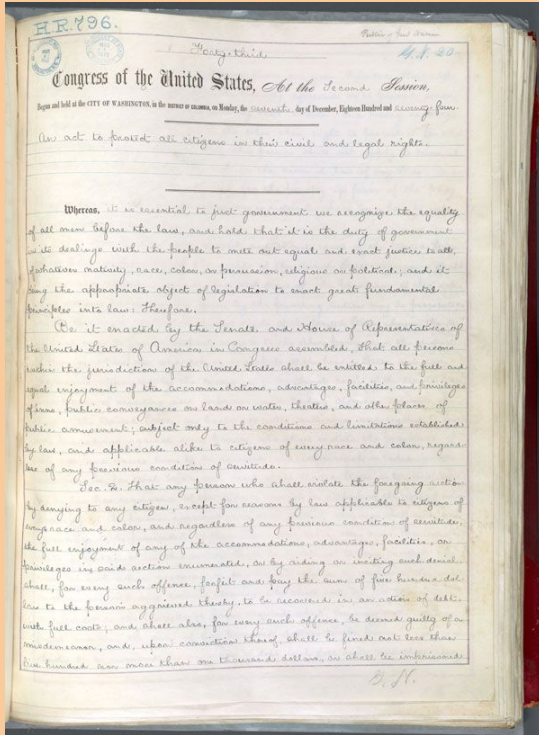 H.R. 796.
Forty-third
G.N. 20
Congress of the United States, At the Second Session,
Begun and held at the CITY OF WASHINGTON, in the DISTRICT OF COLUMBIA, on Monday, the seventh day of December, Eighteen Hundred and seventy-four.
An act to protect all citizens in their civil and legal rights.
Whereas, it is essential to just government we recognize the equality
of all men before the law, and hold that it is the duty of government
in its dealings with the people to mete out equal and exact justice to all,
of whatever nativity, race, color, or persuasion, religious or political; and it
being the appropriate object of legislation to enact great fundamental
principles into law: Therefore,
Be it enacted by the Senate and House of Representatives of
the United States of America in Congress assembled, That all persons
within the jurisdiction of the United States shall be entitled to the full and
equal enjoyment of the accommodations, advantages, facilities, and privileges
of inns, public conveyances on land or water, theaters, and other places of
public amusement; subject only to the conditions and limitations established
by law, and applicable alike to citizens of every race and color, regard-
less of any previous condition of servitude.
Sec. 2. That any person who shall violate the foregoing section
by denying to any citizen, except for reasons by law applicable to citizens of
every race and color, and regardless of any previous condition of servitude,
the full enjoyment of any of the accommodations, advantages, facilities, or
privileges in said section enumerated, or by aiding or inciting such denial,
shall, for every such offence, forfeit and pay the sum of five hundred dol
lars to the person aggrieved thereby, to be recovered in an action of debt,
with full costs; and shall also, for every such offence, be deemed guilty of a
misdemeanor, and, upon conviction thereof, shall be fined not less than
five hundred nor more than one thousand dollars, or shall be imprisoned